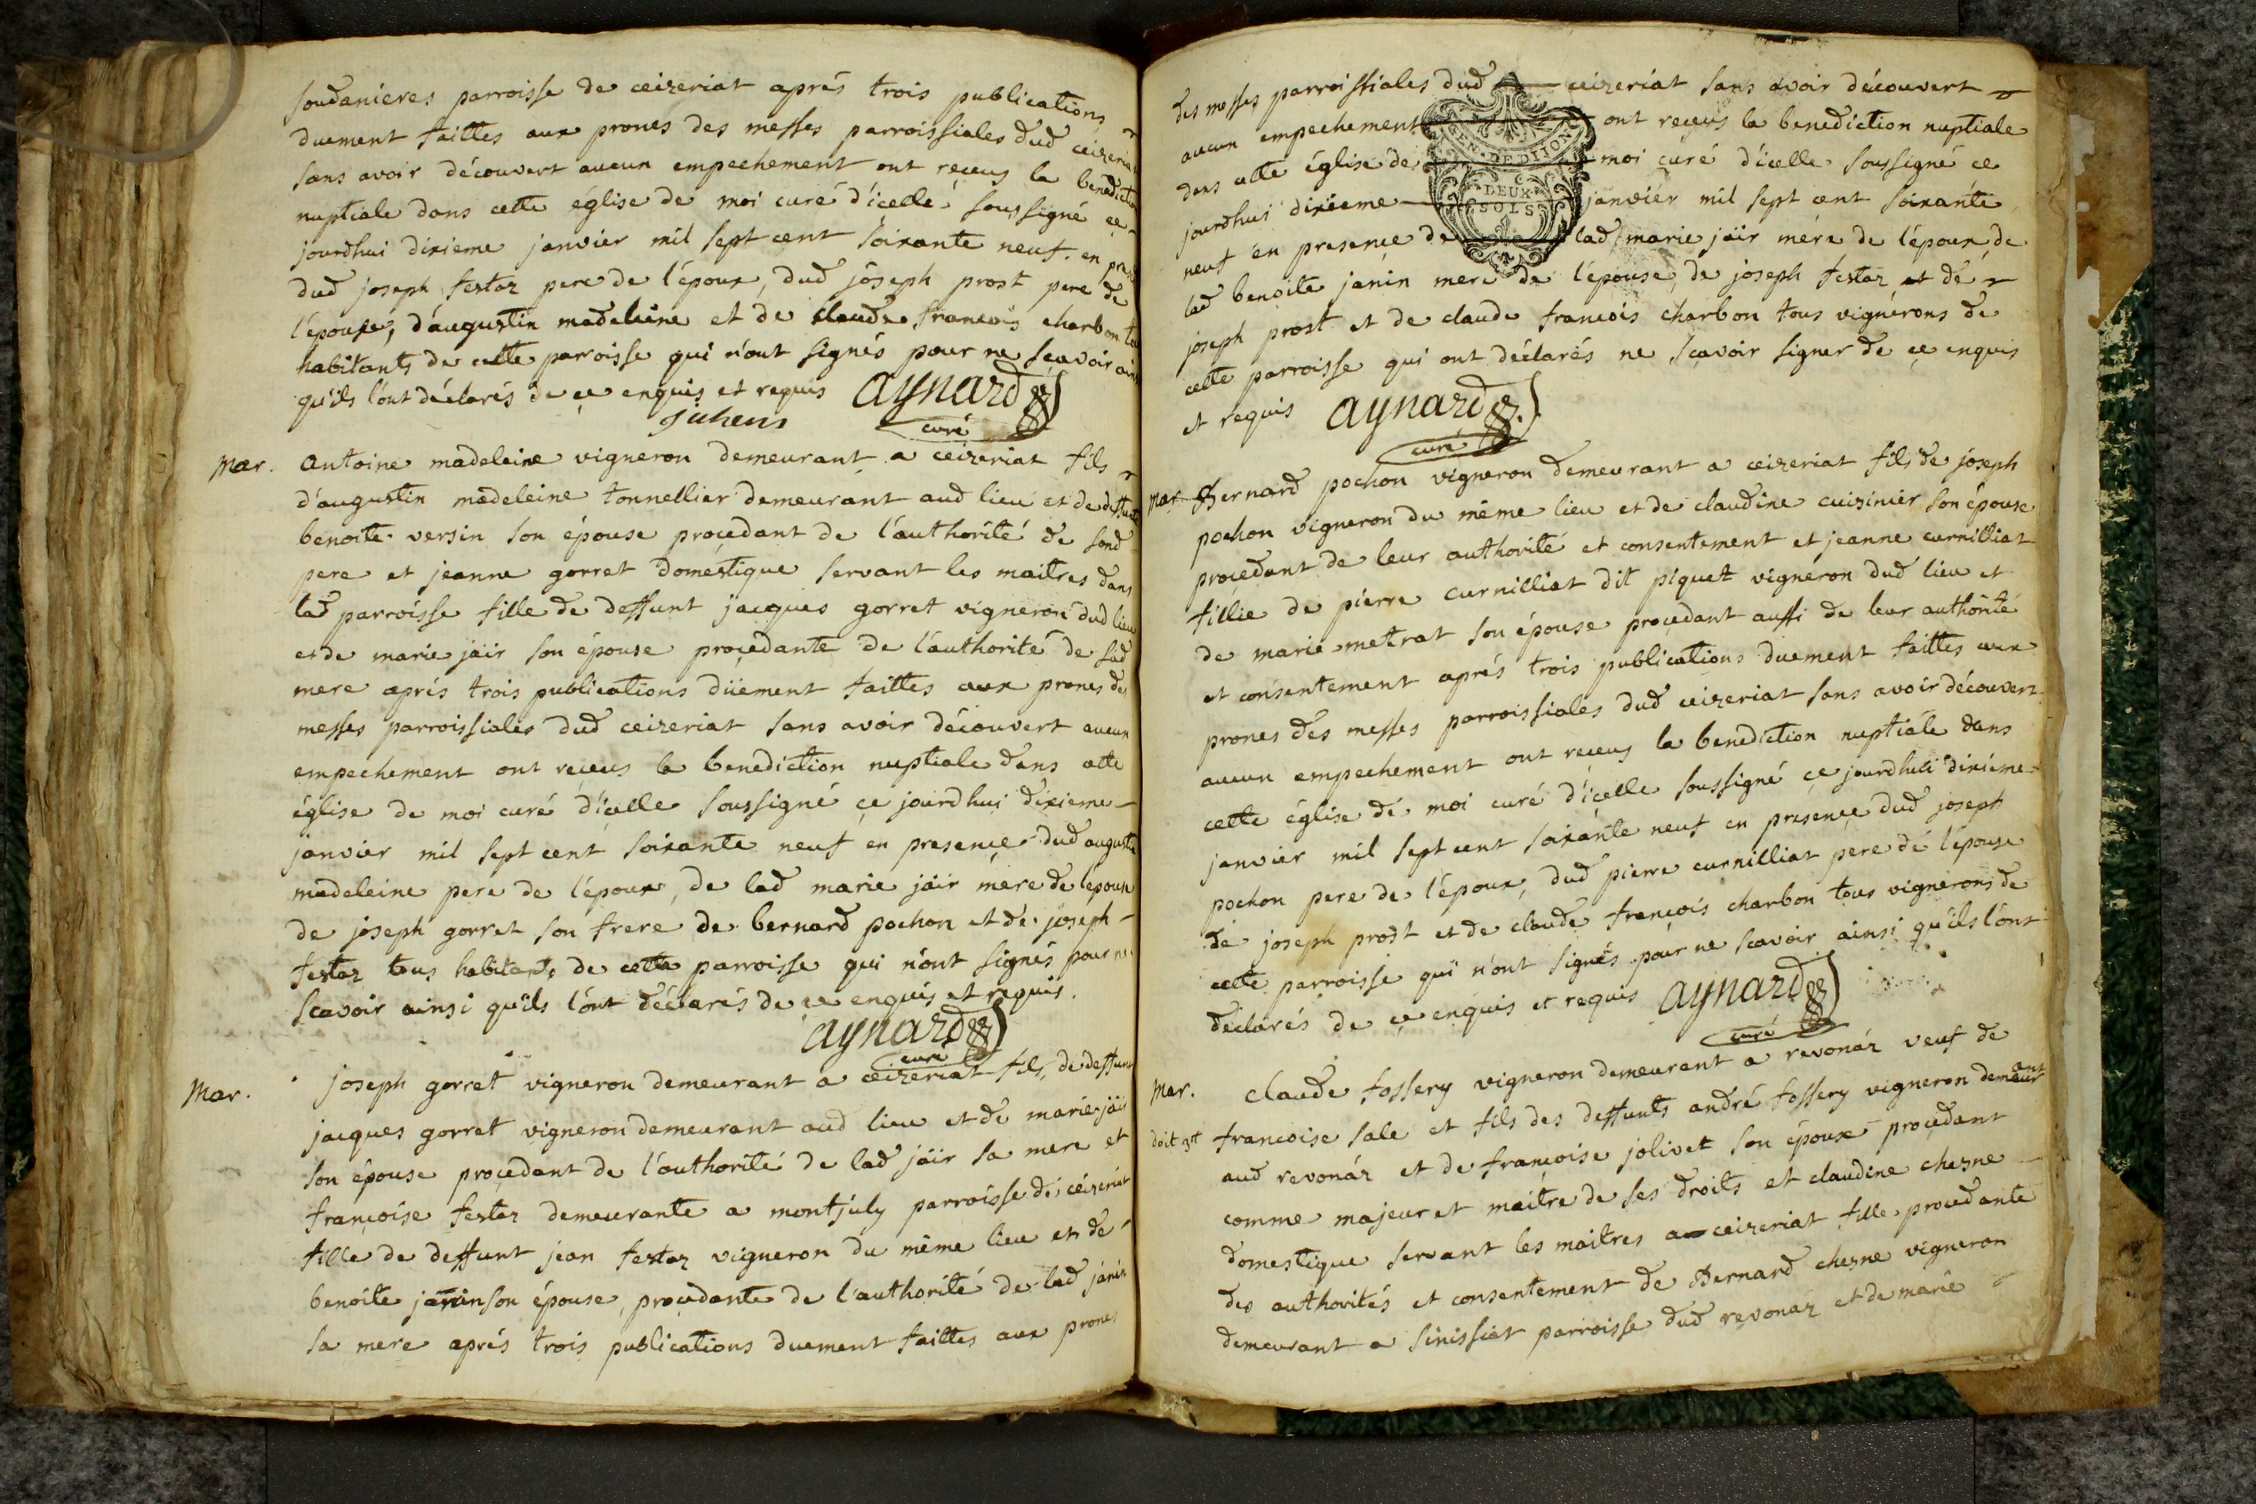 soudanieres parroisse de ceizeriat aprés trois publications
duement faittes aux prones des messes parroissiales dud ceizeriat
sans avoir découvert aucun empechement ont reçeus la benediction
nuptiale dans cette église de moi curé d'icelle soussigné ce
jourdhui dixieme janvier mil sept cent soixante neuf. en
dud joseph festaz pere de l'époux, dud joseph prost pere de
l'épouse, d'augustin madeleine et de claude francois charbon
habitants de cette parroisse qui n'ont signés pour ne sçavoir
qu'ils l'ont déclarés de ce enquis et requis aynard
curé
mar. antoine madeleine vigneron demeurant a ceizeriat fils
d'augustin madeleine tonnellier demeurant aud lieu et de deffunte
benoite versin son épouse proçedant de l'authorité de sond
pere et jeanne gorret domestique servant les maitres dans
lad parroisse fille de deffunt jacques gorret vigneron dud lieu
et de marie jaïr son épouse proçedante de l'authorité de sad
mere aprés trois publications düement faittes aux prones des
messes parroissiales dud ceizeriat sans avoir découvert aucun
empechement ont reçeus la benediction nuptiale dans cette
église de moi curé d'içelle soussigné çe jourdhui dixieme
janvier mil sept cent soixante neuf en presençe dud augustin
madeleine pere de l'époux, de lad marie jaïr mere de l'épouse
de joseph gorret son frere de bernard pochon et de joseph
festaz tous habitants de cette parroisse qui n'ont signés pour ne
scavoir ainsi qu'ils l'ont déclarés de ce enquis et requis.
aynard
curé
Mar. joseph gorret vigneron demeurant a ceizeriat fils de deffunt
jacques gorret vigneron demeurant aud lieu et de marie jaïr
son épouse proçedant de l'authorité de lad jaïr sa mere et
françoise festaz demeurante a montjuly parroisse de ceizeriat
fille de deffunt jean festaz vigneron du même lieu et de
benoite janin son épouse, proçedante de l'authorité de lad janin
sa mere aprés trois publications duement faittes aux prones
des messes parroissiales dud ceizeriat sans avoir découvert
aucun empechement ont reçeus la benediction nuptiale
GEN. DE DIJON
dans cette église de moi curé d'icelle soussigné ce
DEUX
SOLS
jourdhui dixieme janvier mil sept cent soixante
neuf en presençe de lad marie jaïr mére de l'époux de
lad benoite janin mere de l'épouse, de joseph festaz et de
joseph prost et de claude francois charbon tous vignerons de
cette parroisse qui ont déclarés ne sçavoir signer de ce enquis
et requis aynard
curé
mar. Bernard pochon vigneron demeurant a ceizeriat fils de joseph
pochon vigneron du même lieu et de claudine cuizinier son épouse
proçedant de leur authorité et consentement et jeanne curnilliat
fillie de pierre curnilliat dit piquet vigneron dud lieu et
de marie metrat son épouse proçedant aussi de leur authorité
et consentement aprés trois publications duement faittes aux
prones des messes parroissiales dud ceizeriat sans avoir découvert
aucun empechement ont reçeus la benediction nuptiale dans
cette église de moi curé d'içelle soussigné çe jourdhui dixiéme
janvier mil sept cent soixante neuf en presençe dud joseph
pochon pere de l'époux, dud pierre curnilliat pere de l'épouse
de joseph prost et de claude françois charbon tous vignerons de
cette parroisse qui n'ont signés pour ne scavoir ainsi qu'ils l'ont
déclarés de ce enquis et requis aynard
curé
Mar. claude fossery vigneron demeurant a revonáz veuf de
doit 3tt francoise sale et fils des deffunts andré fossery vigneron demeurant
aud revonáz et de françoise jolivet son épouse proçedant
comme majeur et maitre de ses droits et claudine chezne
domestique servant les maitres a ceizeriat fille proçedante
des authorités et consentement de Bernard chezne vigneron
demeurant a sinissiat parroisse dud revonaz et de marie